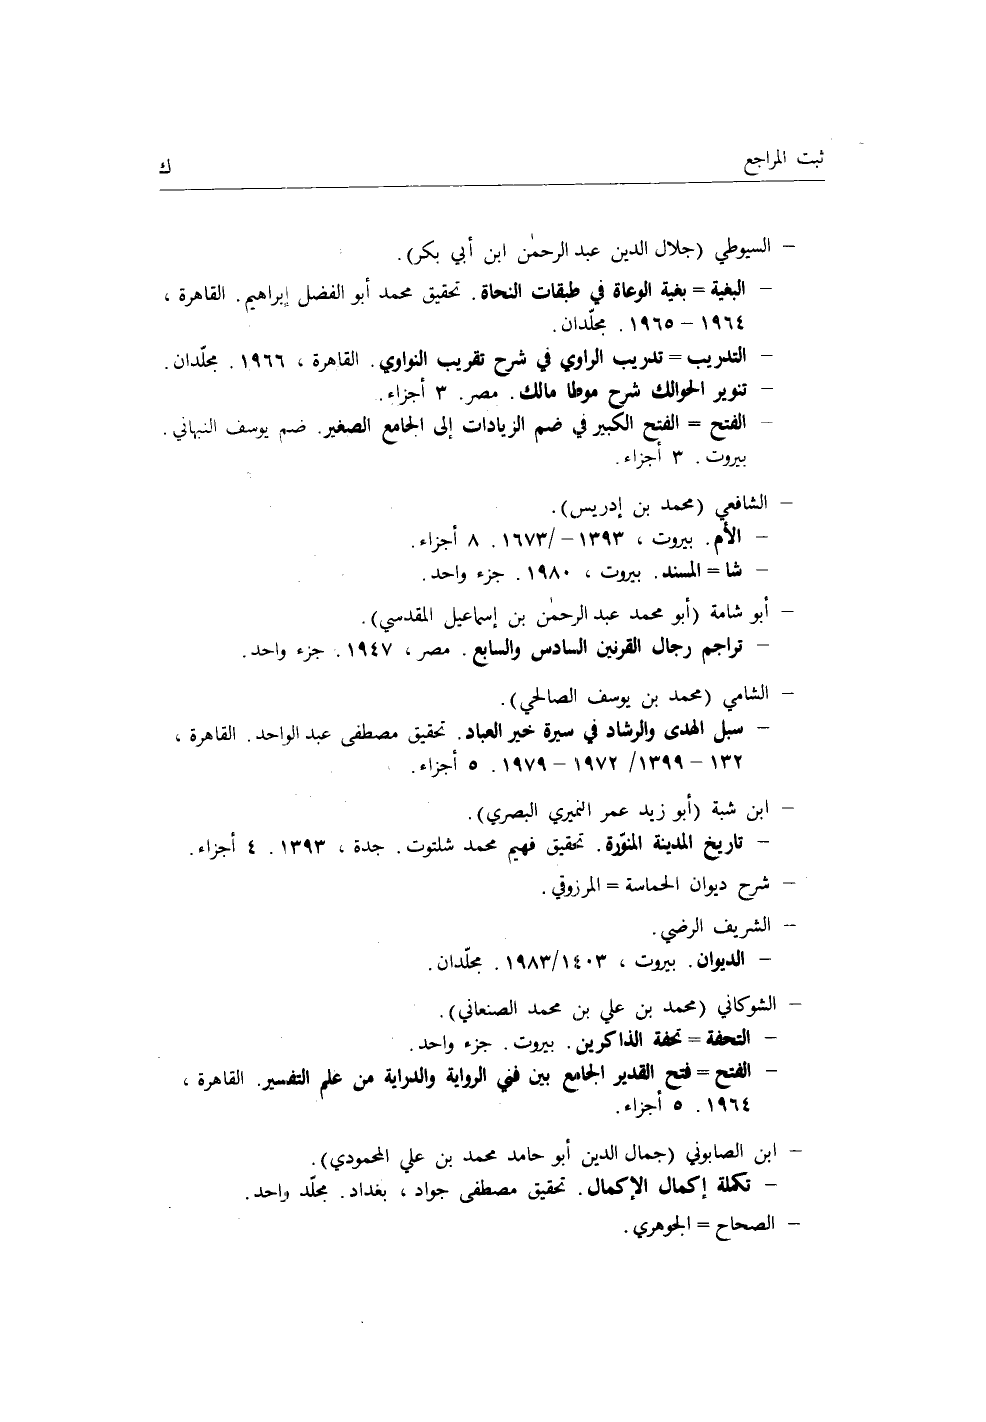 ثبت المراجع
ك
– السيوطي (جلال الدين عبد الرحمٰن ابن أبي بكر).
– البغية = بغية الوعاة في طبقات النحاة. تحقيق محمد أبو الفضل إبراهيم. القاهرة ،
١٩٦٤ – ١٩٦٥. مجلّدان.
– التدريب = تدريب الراوي في شرح تقريب النواوي. القاهرة ، ١٩٦٦. مجلّدان.
– تنوير الحوالك شرح موطا مالك. مصر. ٣ أجزاء.
– الفتح = الفتح الكبير في ضم الزيادات إلى الجامع الصغير. ضم يوسف النبهاني.
بيروت. ٣ أجزاء.
– الشافعي (محمد بن إدريس).
– الأم. بيروت ، ١٣٩٣–/١٦٧٣. ٨ أجزاء.
– شا = المسند. بيروت ، ١٩٨٠. جزء واحد.
– أبو شامة (أبو محمد عبد الرحمٰن بن إسماعيل المقدسي).
– تراجم رجال القرنين السادس والسابع. مصر ، ١٩٤٧. جزء واحد.
– الشامي (محمد بن يوسف الصالحي).
– سبل الهدى والرشاد في سيرة خير العباد. تحقيق مصطفى عبد الواحد. القاهرة ،
١٣٢ – ١٣٩٩/ ١٩٧٢ – ١٩٧٩. ٥ أجزاء.
– ابن شبة (أبو زيد عمر النميري البصري).
– تاريخ المدينة المنوّرة. تحقيق فهيم محمد شلتوت. جدة ، ١٣٩٣. ٤ أجزاء.
– شرح ديوان الحماسة = المرزوقي.
– الشريف الرضي.
– الديوان. بيروت ، ١٩٨٣/١٤٠٣. مجلّدان.
– الشوكاني (محمد بن علي بن محمد الصنعاني).
– التحفة = تحفة الذاكرين. بيروت. جزء واحد.
– الفتح = فتح القدير الجامع بين فني الرواية والدراية من علم التفسير. القاهرة ،
١٩٦٤. ٥ أجزاء.
– ابن الصابوني (جمال الدين أبو حامد محمد بن علي المحمودي).
– تكملة إكمال الإكمال. تحقيق مصطفى جواد ، بغداد. مجلّد واحد.
– الصحاح = الجوهري.